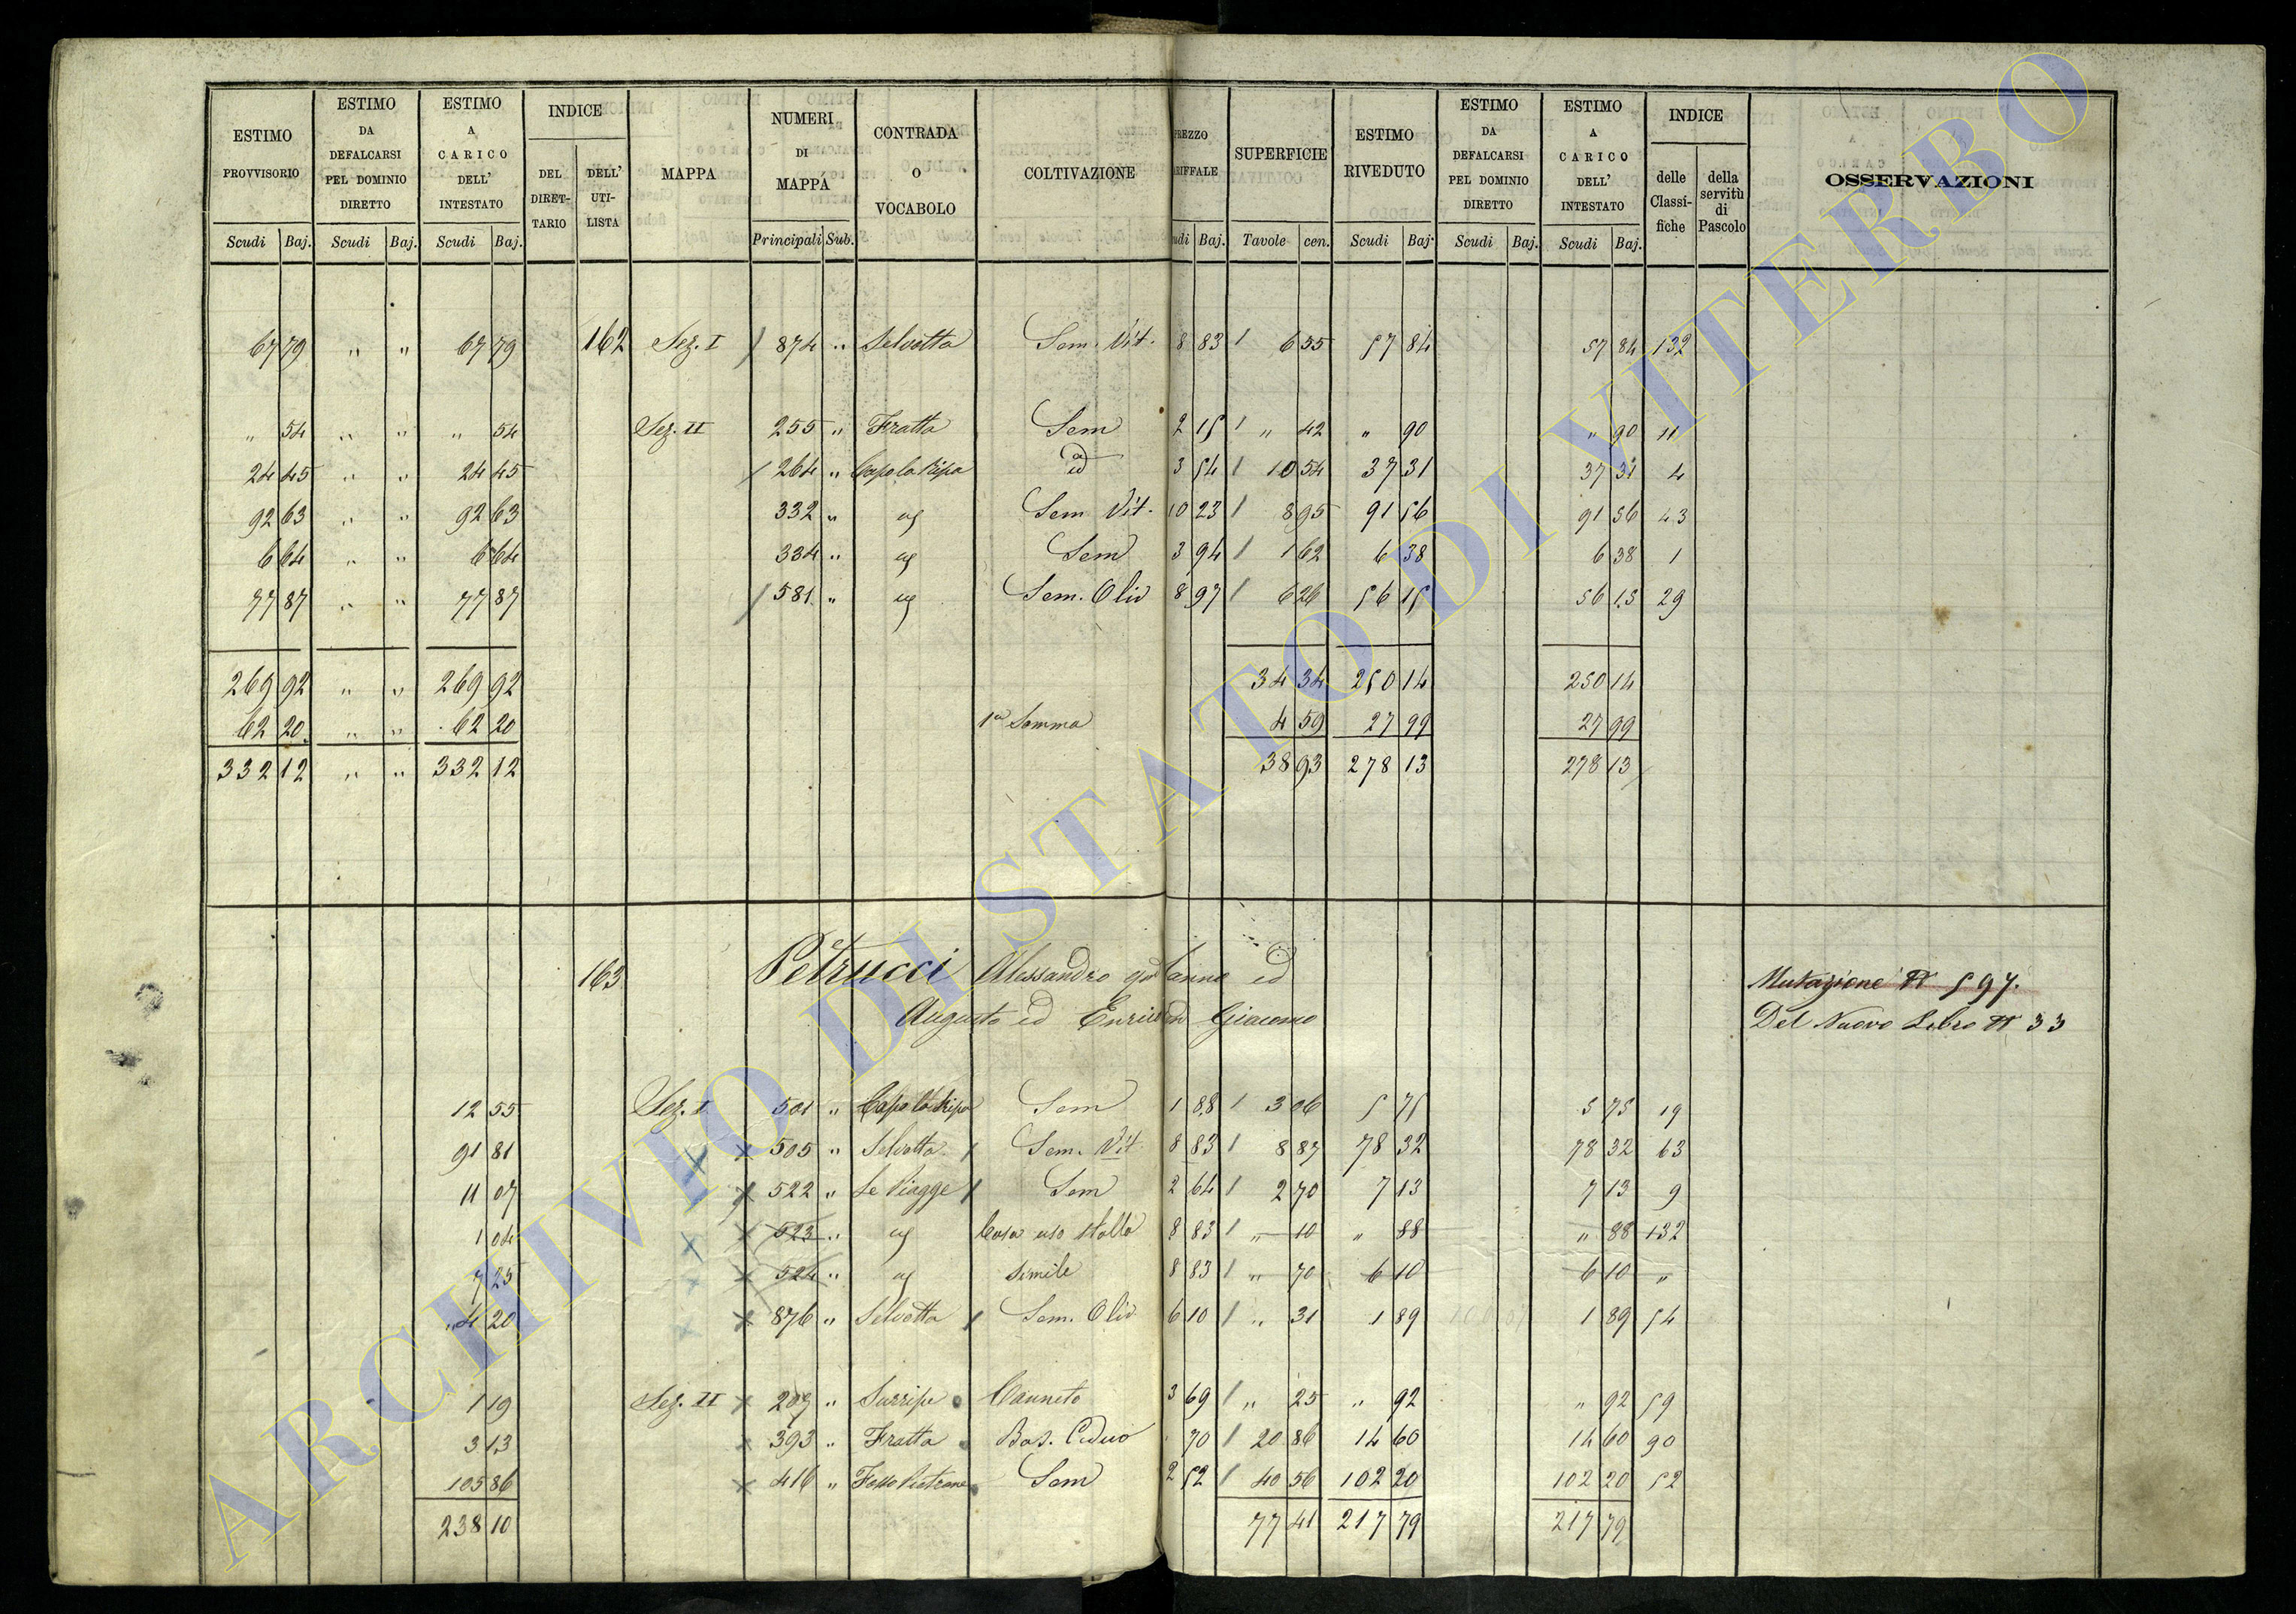 ESTIMO PROVVISORIO | ESTIMO DA DEFALCARSI PEL DOMINIO DIRETTO | ESTIMO A CARICO DELL' INTESTATO | INDICE | MAPPA | NUMERI DI MAPPA | CONTRADA O VOCABOLO | COLTIVAZIONE | PREZZO TARIFFALE | SUPERFICIE | ESTIMO RIVEDUTO | ESTIMO DA DEFALCARSI PEL DOMINIO DIRETTO | ESTIMO A CARICO DELL' INTESTATO | INDICE | OSSERVAZIONI
DEL DIRET-TARIO | DELL' UTI-LISTA | delle Classi-fiche | della servitù di Pascolo
Scudi Baj. | Scudi Baj. | Scudi Baj. | Principali Sub. | udi Baj. | Tavole cen. | Scudi Baj. | Scudi Baj. | Scudi Baj.
67 79 " " 67 79 162 Sez. I 874 " Selvotta Sem. Vit. 8 83 6 55 57 84 57 84 132
" 54 " " " 54 Sez. II 255 " Fratta Sem 2 15 " 42 " 90 " 90 11
24 45 " " 24 45 264 " Capo la Ripa id 3 54 10 54 37 31 37 31 4
92 63 " " 92 63 332 " " Sem Vit. 10 23 8 95 91 56 91 56 43
6 64 " " 6 64 334 " " Sem 3 94 1 62 6 38 6 38 1
77 87 " " 77 87 581 " " Sem. Oliv 8 97 6 26 56 15 56 15 29
269 92 " " 269 92 34 34 250 14 250 14
62 20 " " 62 20 1a Somma 4 59 27 99 27 99
332 12 " " 332 12 38 93 278 13 278 13
163 Petrucci Alessandro ed
Augusto ed Enrico Giacomo
Mutazione N 597.
Del Nuovo Libro N 33
12 55 Sez. I 501 " Capo la Ripa Sem 1 88 3 06 5 75 5 75 19
91 81 505 " Selvotta Sem. Vit. 8 83 8 87 78 32 78 32 63
11 07 522 " Le Piagge Sem 2 64 2 70 7 13 7 13 9
1 04 523 " " Casa uso stalla 8 83 " 10 " 88 " 88 132
7 25 524 " " simile 8 83 " 70 6 10 6 10 "
4 20 876 " Selvotta Sem. Oliv 6 10 " 31 1 89 1 89 54
1 19 Sez. II 209 " Surripe Canneto 3 69 " 25 " 92 " 92 59
3 13 393 " Fratta Bos. Ceduo 70 20 86 14 60 14 60 90
105 86 416 " Fosso Sem 2 52 40 56 102 20 102 20 52
238 10 77 41 217 79 217 79
ARCHIVIO DI STATO DI VITERBO